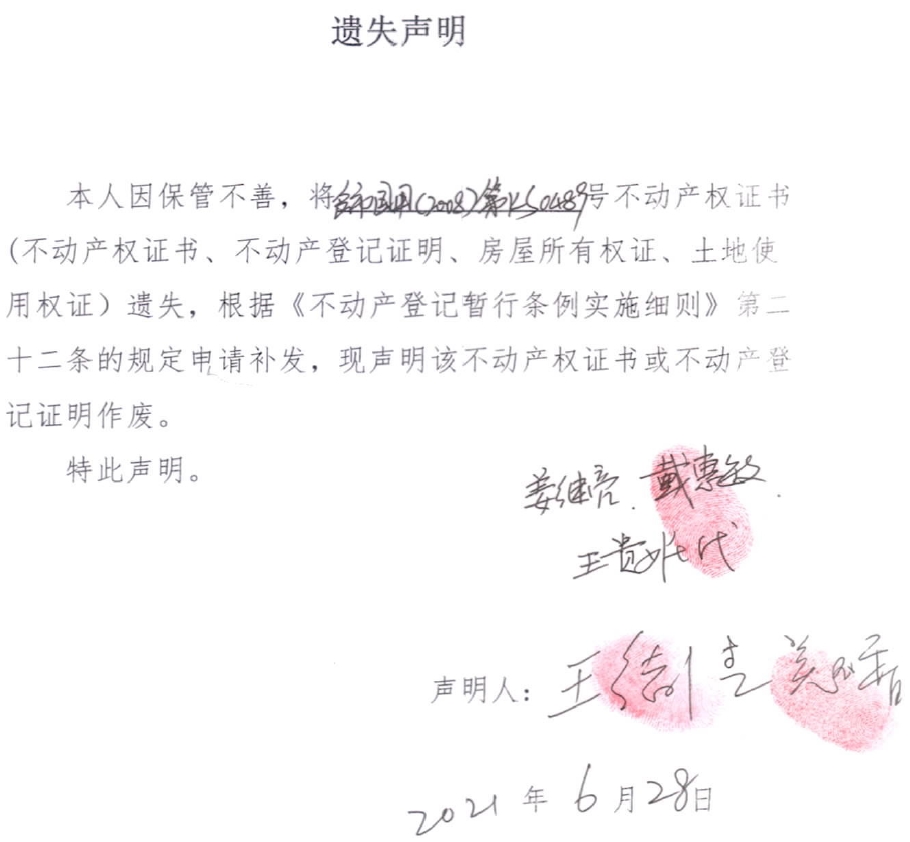 遗失声明
本人因保管不善，将台市国用(2008)第KS0489号不动产权证书
(不动产权证书、不动产登记证明、房屋所有权证、土地使
用权证）遗失，根据《不动产登记暂行条例实施细则》第二
十二条的规定申请补发，现声明该不动产权证书或不动产登
记证明作废。
特此声明。
姜继亮、戴惠敏.
王贵 代
声明人：王
2021年6月28日